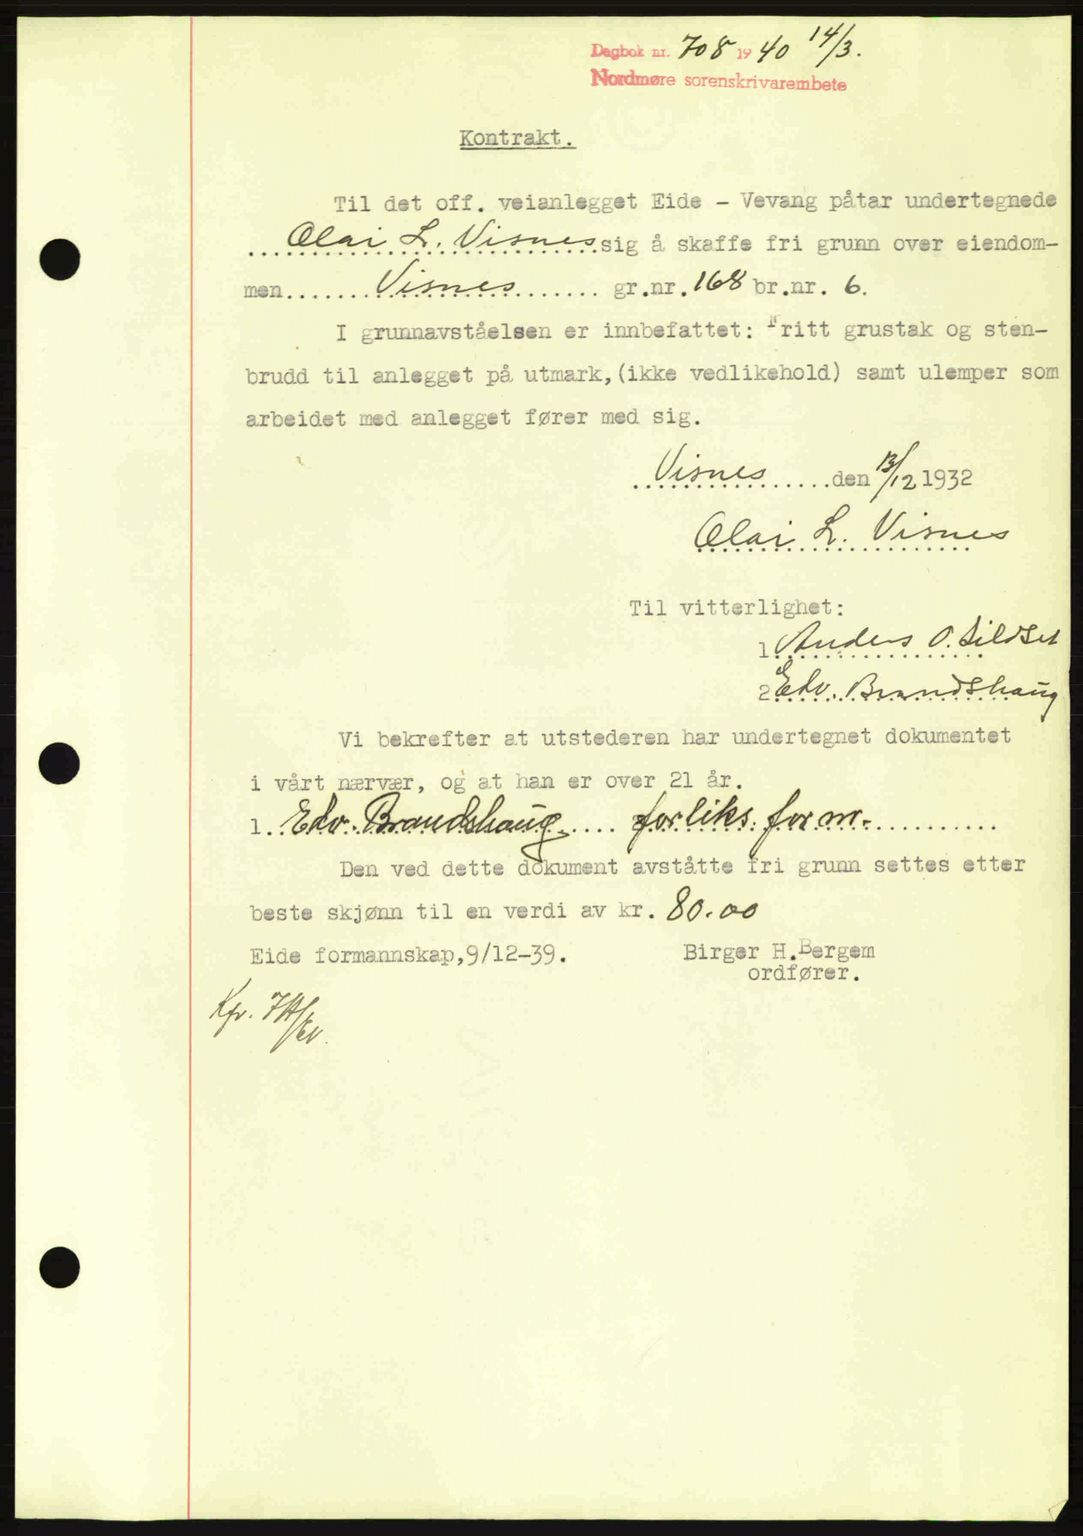 Dagbok nr. 708 1940 14/3.
Nordmøre sorenskrivarembete
Kontrakt.
Til det off. veianlegget Eide - Vevang påtar undertegnede
Olai L. Visnes sig å skaffe fri grunn over eiendom-
men Visnes gr.nr. 168 br.nr. 6.
I grunnavståelsen er innbefattet: Fritt grustak og sten-
brudd til anlegget på utmark,(ikke vedlikehold) samt ulemper som
arbeidet med anlegget fører med sig.
Visnes den 13/12 1932
Olai L. Visnes
Til vitterlighet:
1 Anders O. Sildset
2 Edv. Brandshaug
Vi bekrefter at utstederen har undertegnet dokumentet
i vårt nærvær, og at han er over 21 år.
1. Edv. Brandshaug forliks. form.
Den ved dette dokument avståtte fri grunn settes etter
beste skjønn til en verdi av kr. 80.00
Eide formannskap,9/12-39. Birger H.Bergem
ordfører.